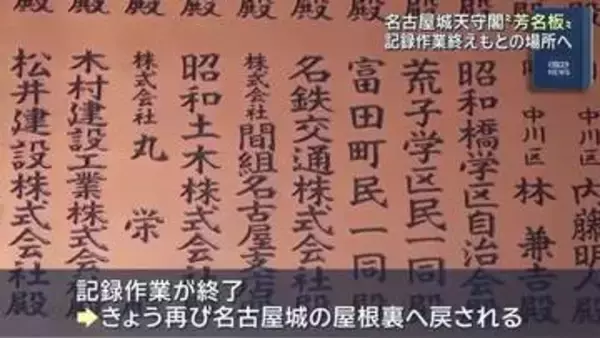 名古屋城天守閣“芳名板”
記録作業終えもとの場所へ
NEWS
中川区 内藤明人殿
中川区 林兼吉殿
昭和橋学区自治会殿
荒子学区民一同殿
富田町民一同殿
名鉄交通株式会社殿
株式会社間組名古屋支店殿
昭和土木株式会社殿
株式会社丸栄殿
木村建設工業株式会社殿
松井建設株式会社殿
記録作業が終了
➡きょう再び名古屋城の屋根裏へ戻される